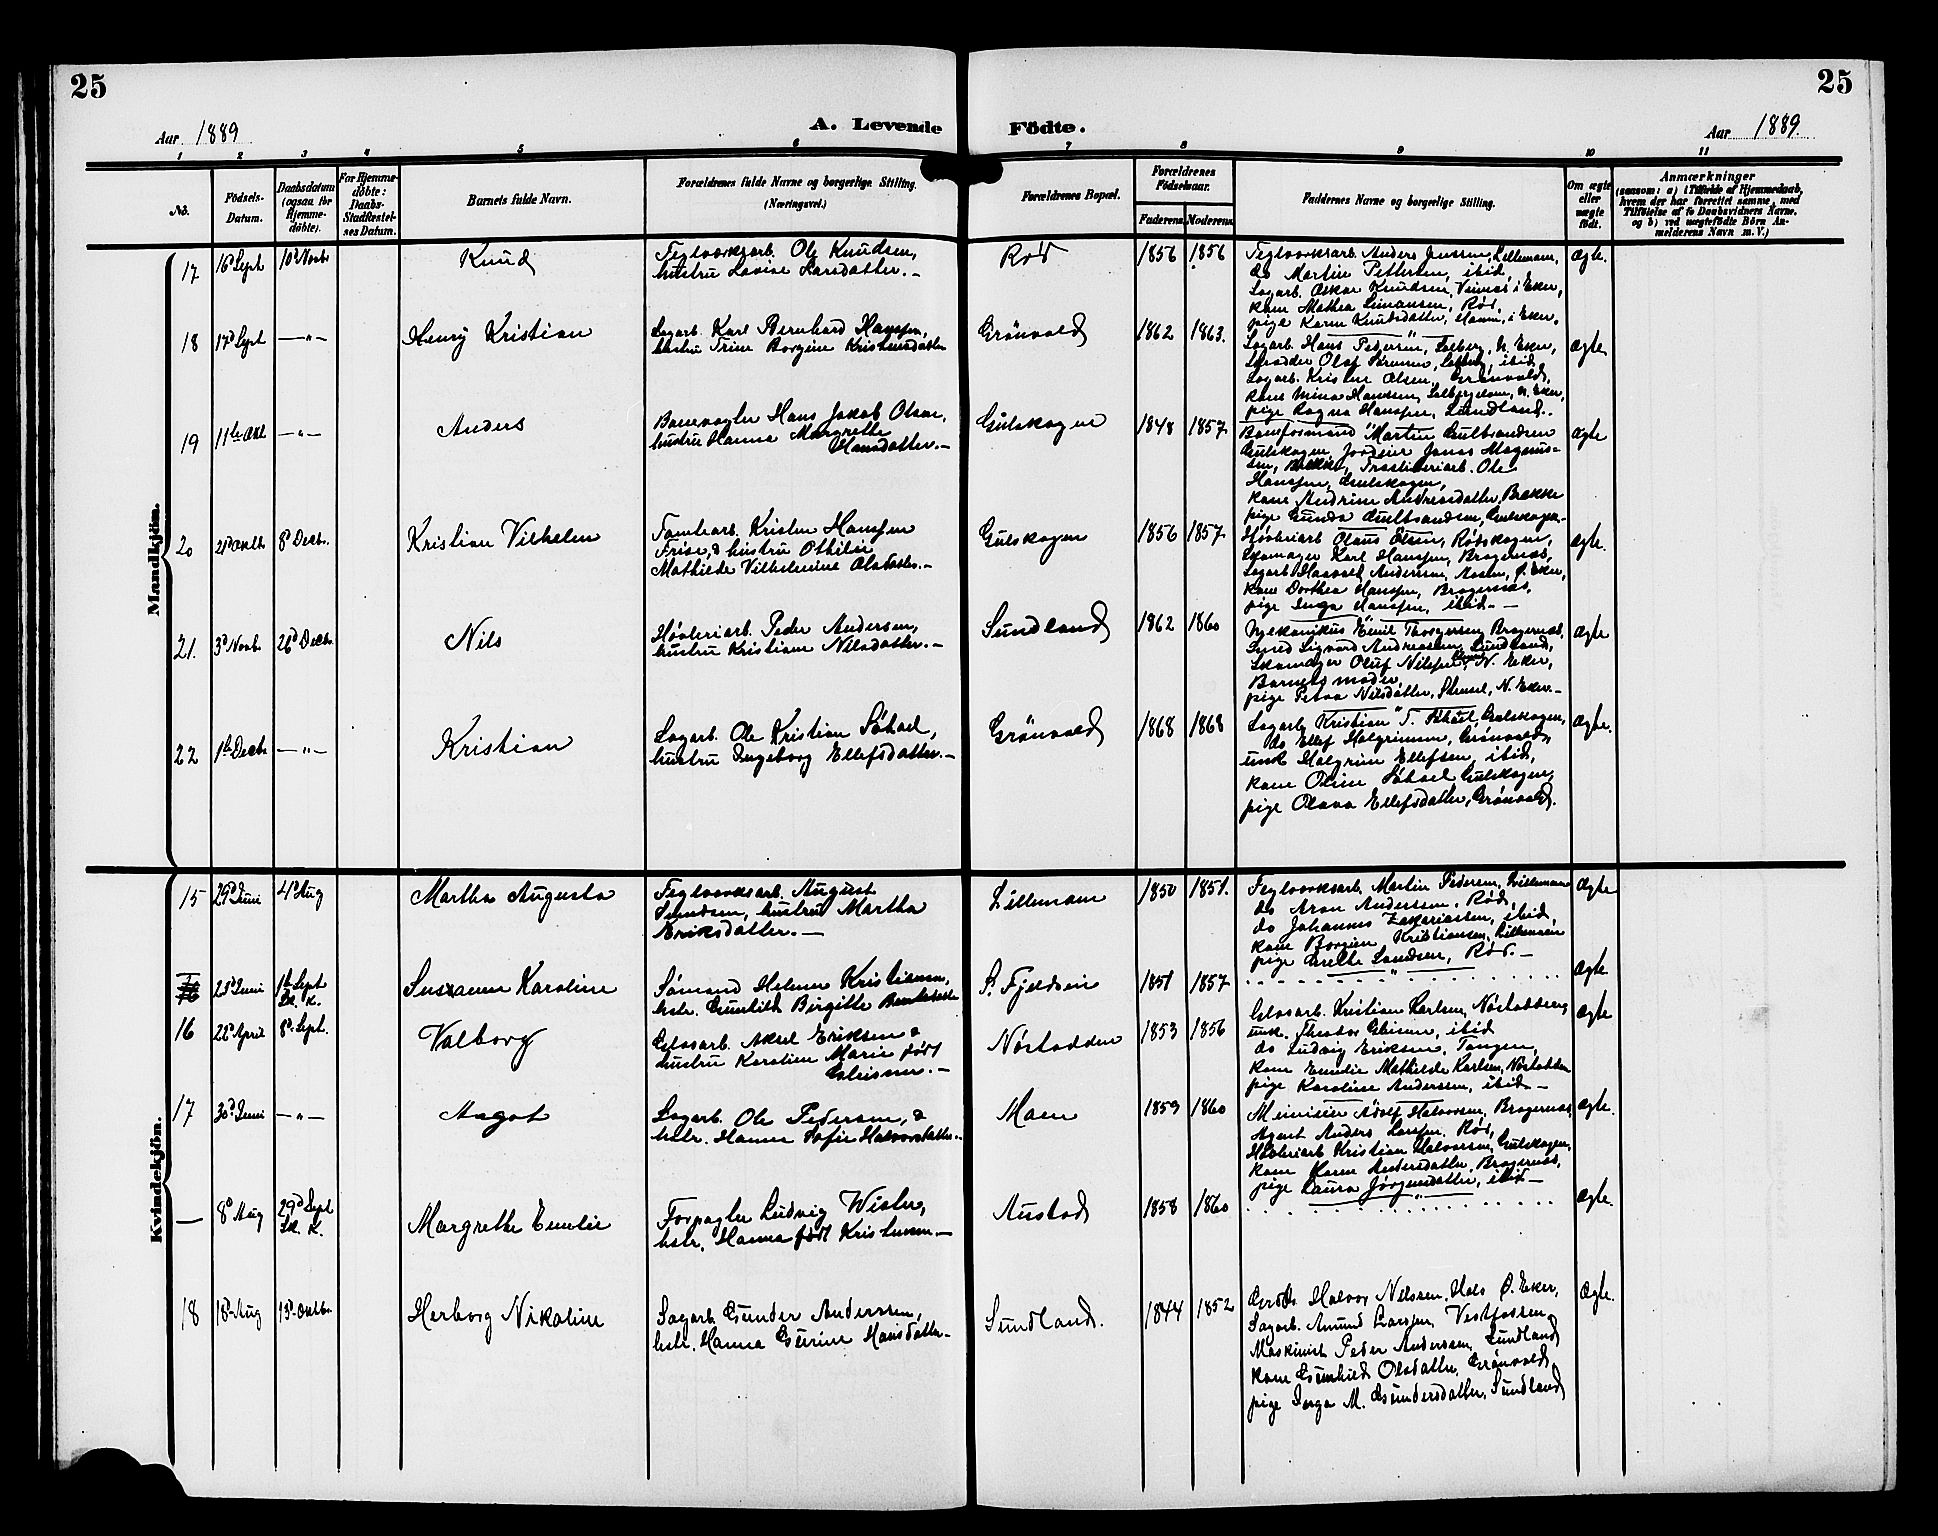 25
25
Aar 1889
A. Levende
Födte.
Aar 1889.
1 2 3 4 5 6 7 8 9 10 11
No.
Födsels-Datum.
Daabsdatum (ogsaa for Hjemme-döbte).
For Hjemme-döbte: Daabs-Stadfæstel-ses Datum.
Barnets fulde Navn.
Forældrenes fulde Navne og borgerlige Stilling.
(Næringsvei.)
Forældrenes Bopæl.
Forældrenes Födselsaar.
Faderens.
Moderens.
Faddernes Navne og borgerlige Stilling.
Om ægte eller uægte födt.
Anmærkninger
(saasom: a) i Tilfælde af Hjemmedaab,
hvem der har forrettet samme, med
Tilföielse af to Daabsvidners Navne,
og b) ved uægtefödte Börn An-
melderens Navn m. V.)
Mandkjön.
17
16d Sept
10d Novb
Knud
Teglværksarb. Ole Knudsen,
hustru Lovise Larsdatter.—
Rød
1856
1856
Teglværksarb. Anders Jensen, Lillemoen,
do Martin Pettersen, ibid,
Sagarb. Oskar Knudsen, i Eker,
kone Mathea Simonsen, Rød,
pige Karen Knudsdatter, i Eker.
Ægte.
18
17d Sept
—"—
Henry Kristian
Sagarb. Karl Bernhard Hansen,
hustru Trine Borgine Kristensdatter
Grönvold
1862
1863.
Sagarb. Hans Pedersen, Solberg, N. Eker,
Skrædder Olaf ibid
Sagarb. Kristen Olsen, Grønvold,
kone Mina Hansen, N. Eker,
pige Ragna Hansen, Sundland..
Ægte
19
11te Okt
—"—
Anders
Banevogter Hans Jakob Olsen,
hustru Hanna Margrethe
Hansdatter.—
Gulskogen
1848
1857
Baneformand Martin Gulbrandsen
Gulskogen, Jordeier Jonas Magnus-
sen, Brekke, Træsliberiarb. Ole
Hansen, Gulskogen,
kone Andrine Andreasdatter, Brekke
pige Gunda Gulbrandsen, Gulskogen.
Ægte
20
21d Oktb.
8d Decb.
Kristian Vilhelm
Tomtearb. Kristen Hansen
Frise, & hustru Othilie
Mathilde Vilhelmine Olsdatter.—
Gulskogen
1856
1857
Høvleriarb Olaus Olsen, Rødskogen,
Skomager Karl Hansen, Bragernæs,
Sagarb Haavald Andersen, Aasen, Ø. Eker,
kone Dorthea Hansen, Bragernæs,
pige Inga Hansen, ibid.—
Ægte.
21.
3d Novb.
26d Decb.
Nils
Høvleriarb. Peder Andersen,
hustru Kristiane Nilsdatter.—
Sundland
1862
1860
Mekanikus Emil Thorgersen, Bragernæs,
Smed Sigvard Andreassen, Sundland,
Skomager Oluf Nilsen, N. Eker,
Barnets moder,
pige Petra Nilsdatter, Stensel, N. Eker.—
Ægte
22
1te Decb
—"—
Kristian
Sagarb. Ole Kristian Søhoel,
hustru Ingeborg Ellefsdatter.—
Grönvold
1868
1868
Sagarb. Kristian T. Søhoel, Gulskogen,
do Ellef Halgrimsen, Grönvold,
unk Halgrim Ellefsen, ibid,
kone Oline Søhoel, Gulskogen,
pige Olava Ellefsdatter, Grönvold.
Ægte.
Kvindekjön.
15
29d Juni
4d Aug
Martha Augusta
Teglværksarb. August
hustru Martha
Eriksdatter.—
Lillemoen
1850
1851.
Teglværksarb. Martin Pedersen, Lillemoen
do Aron Andersen, Rød,
do Johannes Zakariassen, ibid,
kone Borgine Kristiansen, Lillemoen
pige Grethe Rød.—
Ægte
16
23d Juni
1te Sept
Sk. K.
Susanne Karoline
Sømand Helmer Kristiansen,
hstr. Gunhild Birgitte
S. Fjeldsein
1851
1857
Ægte
16
22d April
8d Sept.
Valborg
Glasarb. Aksel Eriksen &
hustru Karoline Marie født
Gleisner.—
Nøstodden
1853
1856
Glasarb. Kristian Karlsen, Nøstodden
unk. Theodor Gleisner, ibid
do Ludvig Eriksen, Tangen,
kone Emilie Mathilde Karlsen, Nøstodden
pige Karoline Andersen, ibid—
Ægte
17
30d Juni
—"—
Aagot
Sagarb. Ole Pedersen, &
hstr. Hanna Sofie Halvorsdatter..
Moen
1859
1860
Adolf Halvorsen, Bragernæs,
Agent Anders Larsen, Rød,
Høvleriarb Kristian Halvorsen, Gulskogen,
kone Karen Andersdatter, Bragernæs,
pige Laura Jørgensdatter, ibid—
Ægte.
—
8d Aug
29d Sept
Sk. K.
Margrethe Emilie
Forpagter Ludvig Wisler,
hstr. Hanna født Kristensen.—
Austad
1858
1860
Ægte.
18
18d Aug
13d Oktb.
Herborg Nikoline
Sagarb Gunder Andersen,
hstr. Hanna Gurine Hansdatter—
Sundland.
1844
1852
Grdbr. Halvor Nilssen, Hals Ø. Eker,
Sagarb. Amund Larsen, Vestfossen,
Maskinist Peder Andersen, Sundland
kone Gunhild Olsdatter, Grönvold,
pige Inga M. Gundersdatter, Sundland
Ægte.